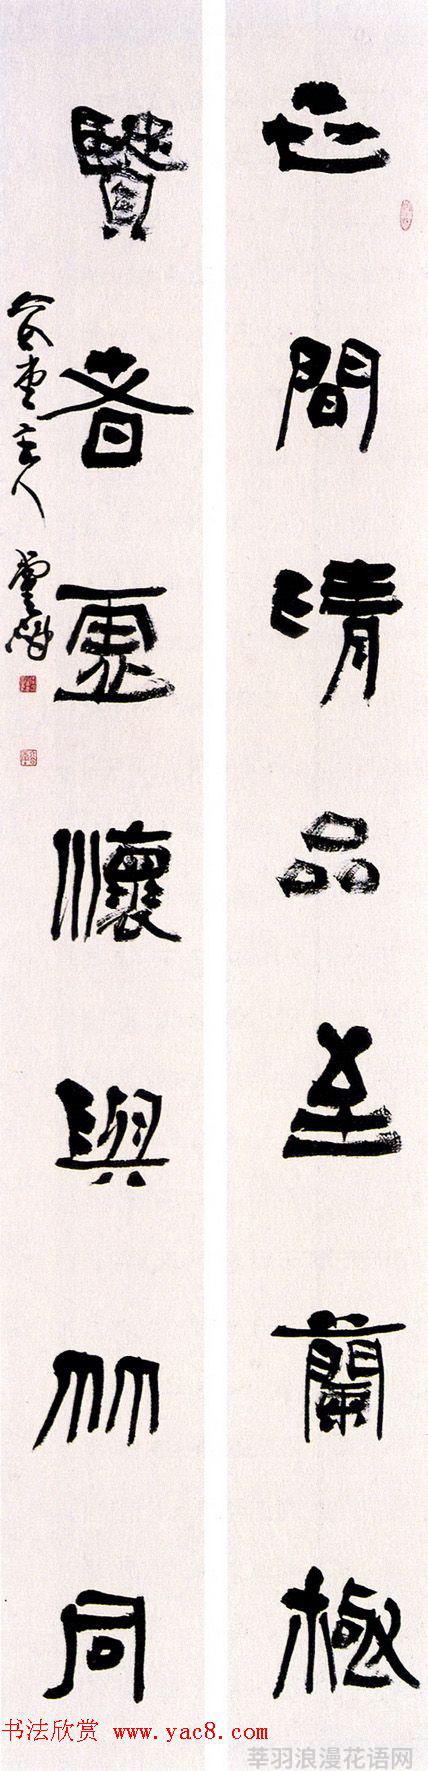 世間清品至蘭極
賢者虛懷與竹同
堂主人
书法欣赏 www.yac8.com
莘羽浪漫花语网